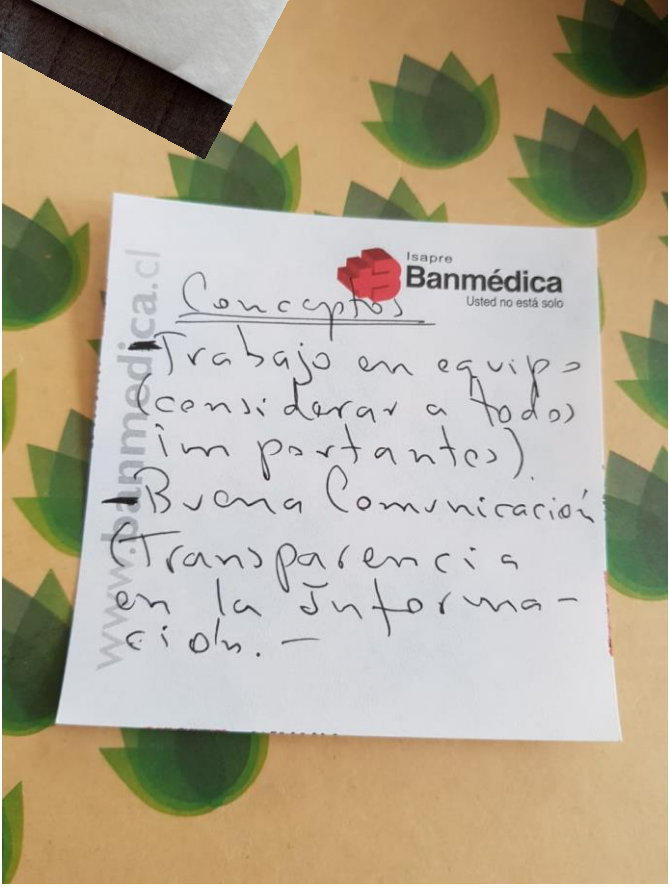 Isapre
Banmédica
Usted no está solo
www.banmedica.cl
Conceptos
- Trabajo en equipo
(considerar a todos
importantes).
- Buena Comunicación
(Transparencia
en la Informa-
ción. -